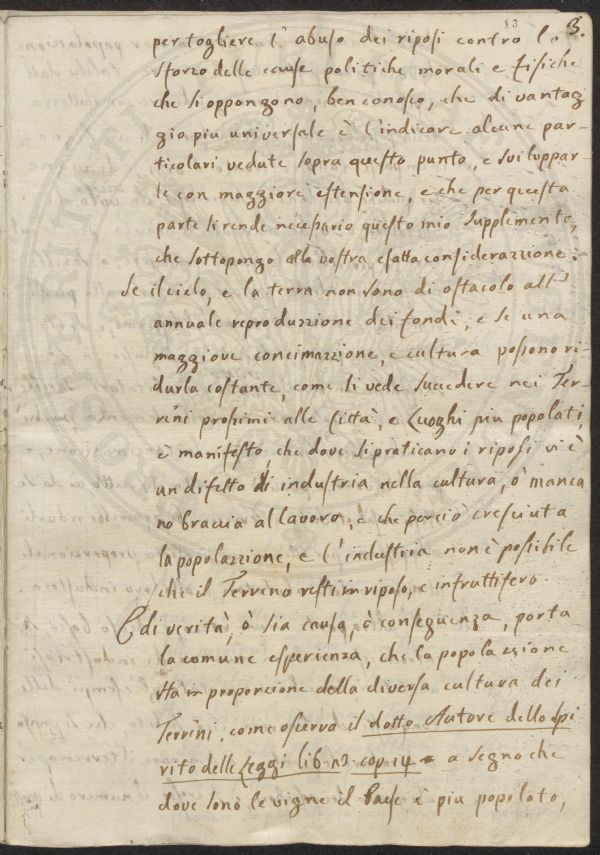 13 3.
per togliere l'abuso dei riposi contro lo
sforzo delle cause politiche morali e fisiche
che si oppongono, ben conosco, che di vantag
gio piu universale è l'indicare alcune par-
ticolari vedute sopra questo punto, e sviluppar-
le con maggiore estensione, e che per questa
parte si rende necessario questo mio supplemento,
che sottopongo alla vostra esatta considerazzione.
Se il cielo, e la terra non sono di ostacolo all'
annuale reproduzzione dei fondi, e se una
maggiore concimazzione, e cultura possono ri-
durla costante, come si vede succedere nei Ter-
reni prossimi alle Città, e Luoghi piu popolati,
è manifesto, che dove si praticano i riposi vi è
un difetto di industria nella cultura, ò manca
no braccia al lavoro, e che perciò cresciuta
la popolazzione, e l'industria non è possibile
che il Terreno resti in riposo, e infruttifero.
E di verità, ò sia causa, ò conseguenza, porta
la comune esperienza, che la popolazzione
sta in proporzione della diversa cultura dei
Terreni, come osserva il dotto Autore dello Spi
rito delle Leggi lib. 23. cap. 14 = a segno che
dove sono le vigne il Paese è piu popolato,